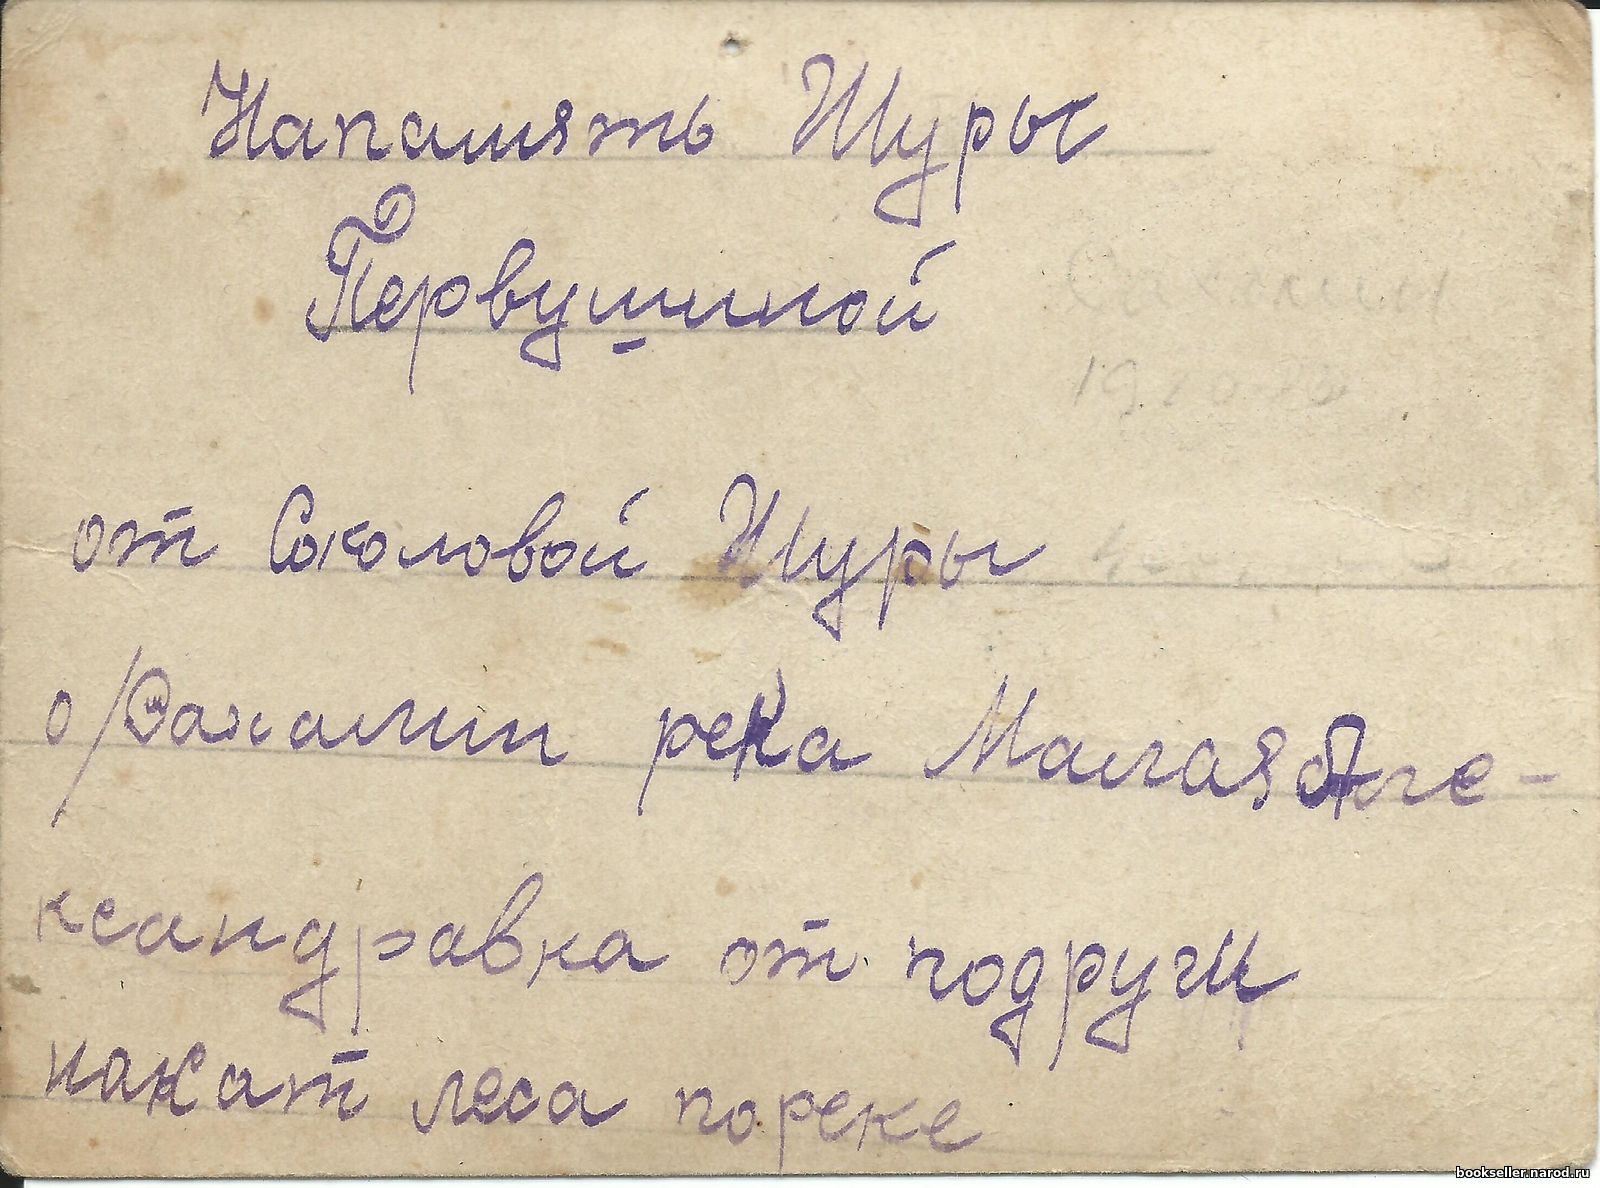 Напамять Шуры
Первушиной
от Соколовой Шуры
о/Сахалин река Малая Але-
ксандравка от подруги
накат леса пореке
bookseller.narod.ru